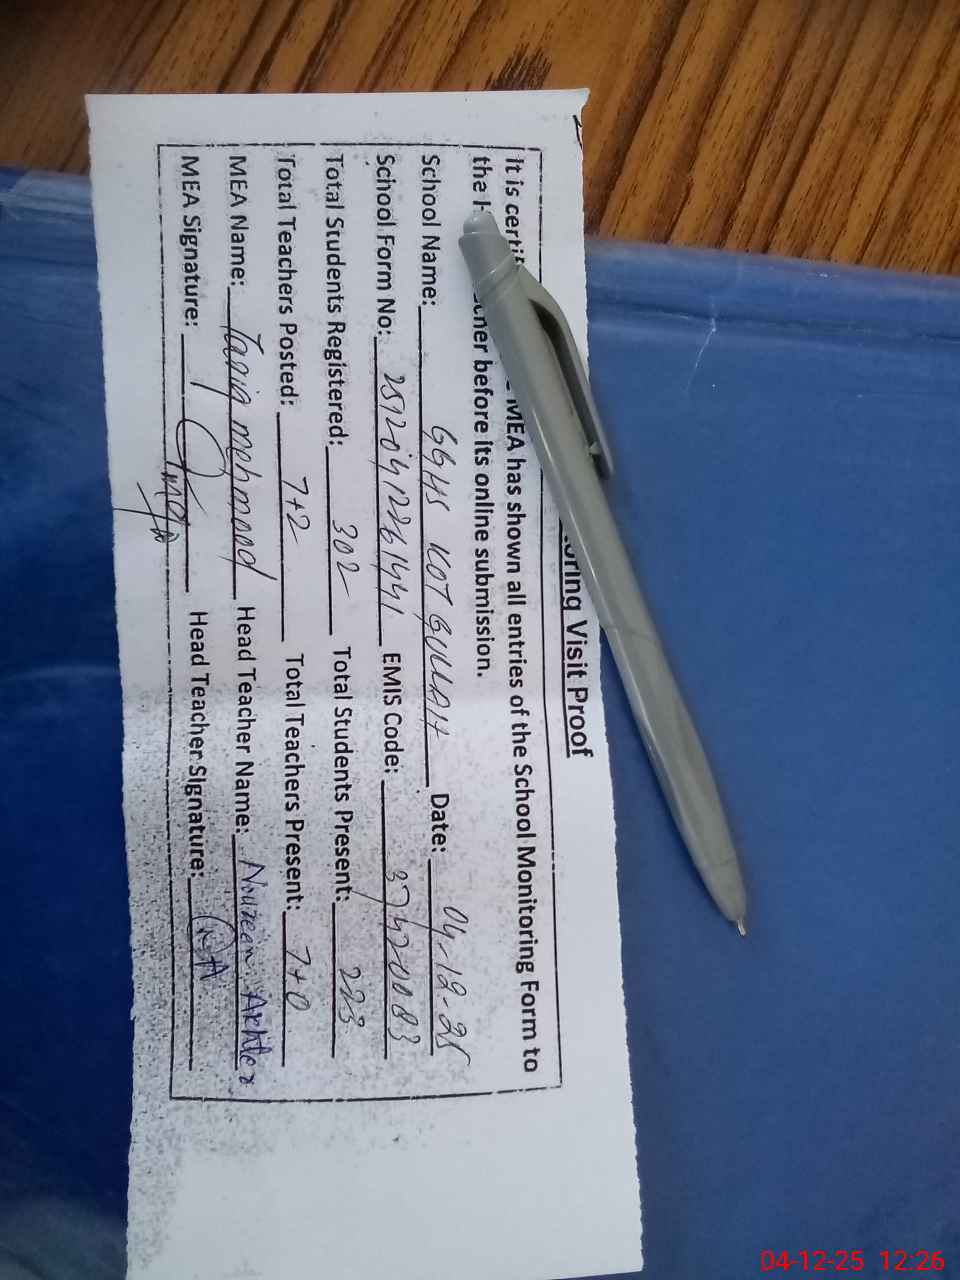 oring Visit Proof
It is certif MEA has shown all entries of the School Monitoring Form to
the H cher before its online submission.
School Name: GGHS KOT GULLAH Date: 04-12-25
School Form No: 25120412261441 EMIS Code: 37420083
Total Students Registered: 302 Total Students Present: 223
Total Teachers Posted: 7+2 Total Teachers Present: 7+0
MEA Name: Tariq mehmood Head Teacher Name: Noureen Akhter
MEA Signature: Head Teacher Signature:
04-12-25 12:26